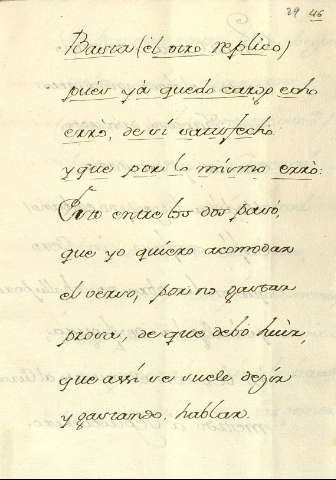 29 46
Basta (el otro replicò)
pués yà quedo
erro, de sí satisfecho
y que por lo mismo errò:
Esto entre los dos pasó,
que yo quiero acomodar
el verso, por no gastar
prosa, de que debo huìr,
que assi se suele dezir
y gastando, hablar.